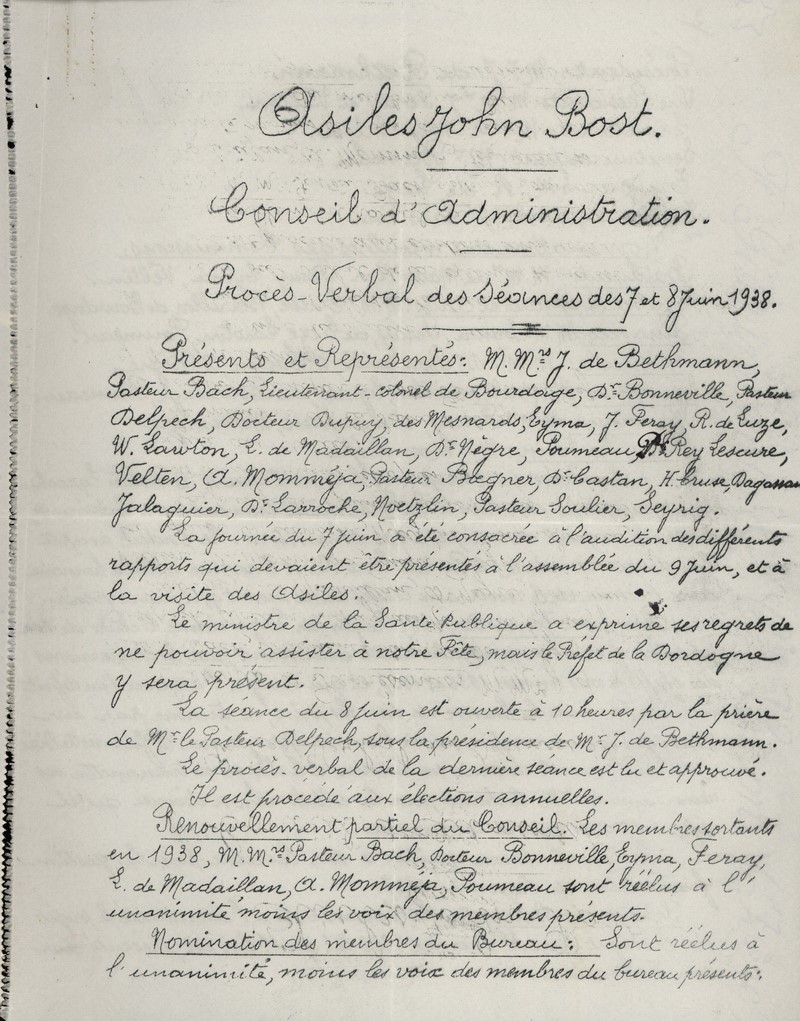 Asiles John Bost.
Conseil d'Administration.
Procès-Verbal des Séances des 7 et 8 Juin 1938.
Présents et Représentés: M.Mrs J. de Bethmann,
Pasteur Bach, Lieutenant-colonel de Bourdage, Dr Bonneville, Pasteur
Delpech, Docteur Dupuy, des Mesnards, Eyma, J. Feray, R. de Luze,
W. Lawton, L. de Madaillan, Dr Nègre, Poumeau, Dr Rey Lescure,
Velten, A. Momméja, Pasteur Bœgner, Dr Castan, H. Cruse, Dagassan
Jalaguier, Dr Larroche, Noetzlin, Pasteur Soulier, Seyrig.
La journée du 7 Juin a été consacrée à l'audition des différents
rapports qui devaient être présentés à l'assemblée du 9 Juin, et à
la visite des Asiles.
Le ministre de la Santé Publique a exprimé ses regrets de
ne pouvoir assister à notre Fête, mais le Préfet de la Dordogne
y sera présent.
La séance du 8 Juin est ouverte à 10 heures par la prière
de Mr le Pasteur Delpech, sous la présidence de Mr J. de Bethmann.
Le procès-verbal de la dernière séance est lu et approuvé.
Il est procédé aux élections annuelles.
Renouvellement partiel du Conseil. Les membres sortants
en 1938, M.Mrs Pasteur Bach, Docteur Bonneville, Eyma, Feray,
L. de Madaillan, A. Momméja, Poumeau sont réélus à l'
unanimité moins les voix des membres présents.
Nomination des membres du Bureau: Sont réélus à
l'unanimité, moins les voix des membres du bureau présents: